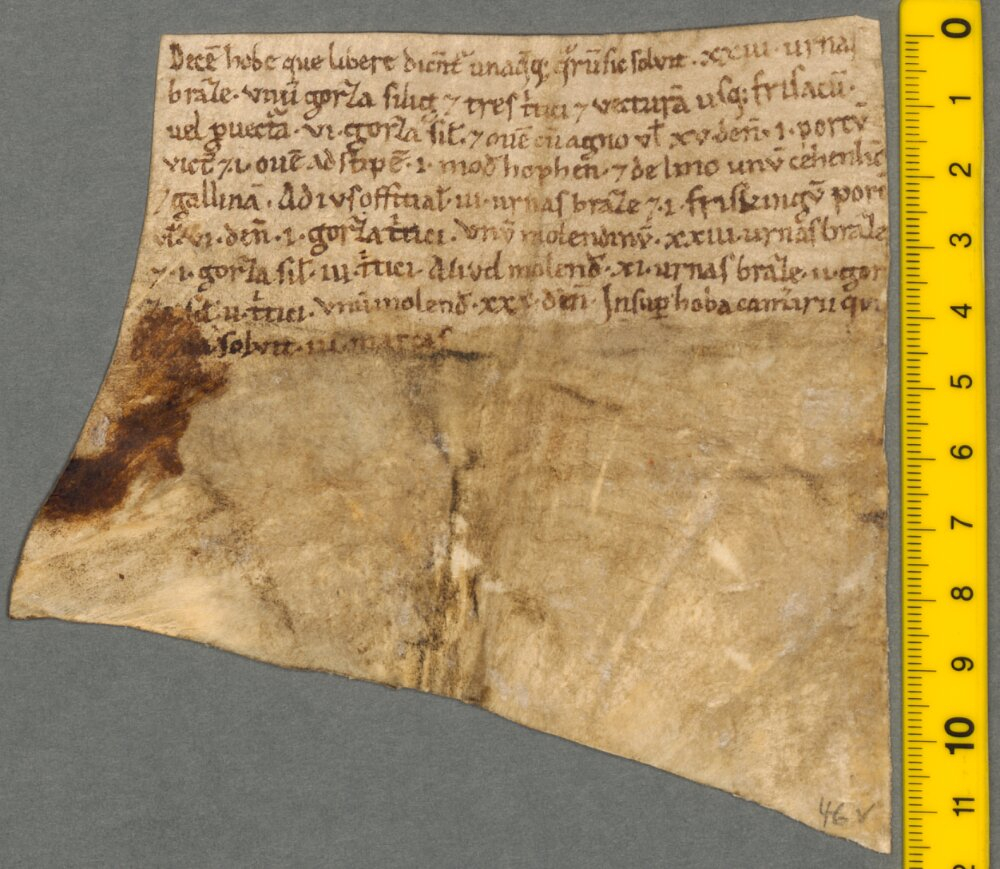 Decē hobe que libere dicñt᷑ unaq̄q; q̄rū sic soluit · xxiii · urnas
braẑe · vnū gorẑa silig̃ ⁊ tres t̃tici ⁊ vecturā usq; frisacū ·
uel ꝓuecta · vi · gorẑa sil̃ · ⁊ ouē cū agno vl̃ xv · deñ · i · porcū
vict̃ ⁊ · i · ouē ad stipē · i · mod̃ hopheñ · ⁊ de lino unū
⁊ gallinā · Ad ivs offitial̃ · iii · urnas braẑe ⁊ · i · friskingū porc̃
vl̃ · vi · deñ · i · gorẑa t̃tici · Vnū molendinū · xxiii · urnas braẑe
⁊ · i · gorẑa sil̃ · iii · t̃tici · Aliud molend̃ · xi · urnas braẑe · ii · gor
sil̃ · ii · t̃tici · vnū molend̃ · xxx · deñ · Insuꝑ hoba camerarii qui
soluit · iii · marcas
46 v
0
1
2
3
4
5
6
7
8
9
10
11